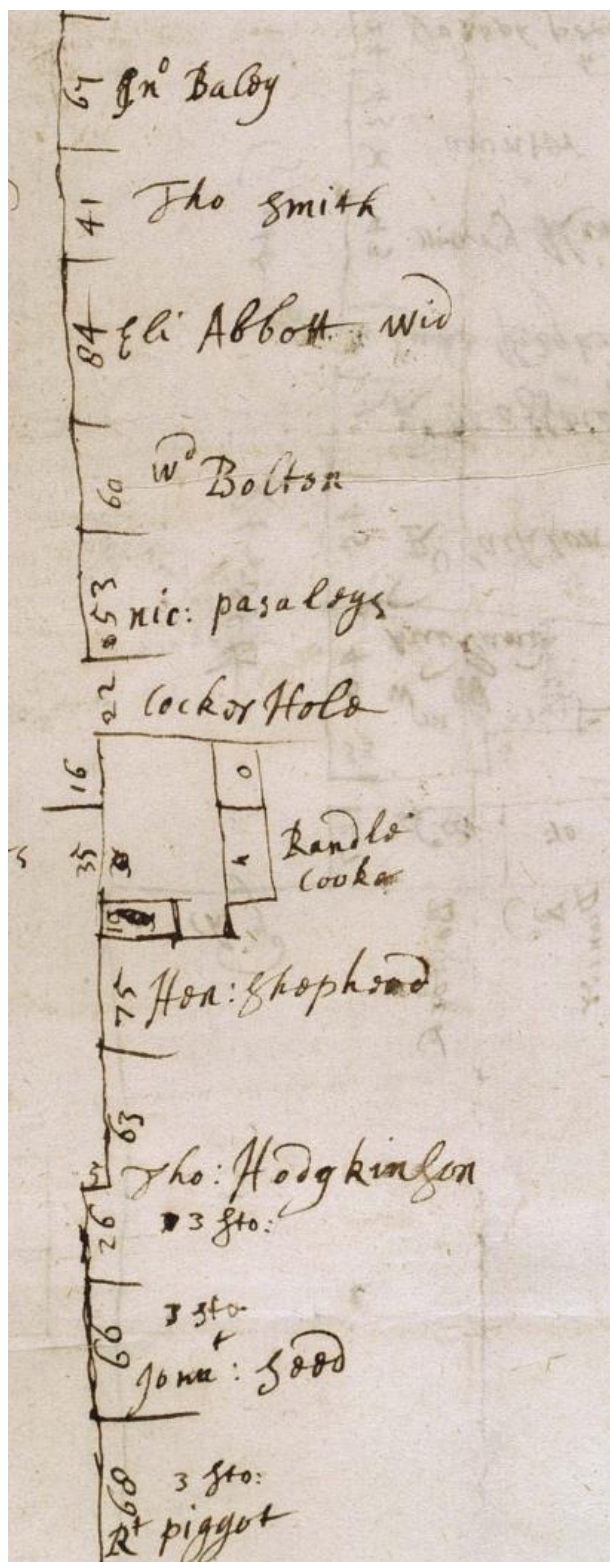 67 Jn⁰ Baley
41 Tho Smith
84 Eli Abbott wid
60 Wᵈ Bolton
53 nic: pasaleys
22 Cocker Hole
16
O
35
Randle
Cooke
75 Hen: Shepherd
63
Tho: Hodgkinson
26 3 sto:
3 sto
66 Jonᵗ: Seed
3 sto:
68
Rᵗ piggot